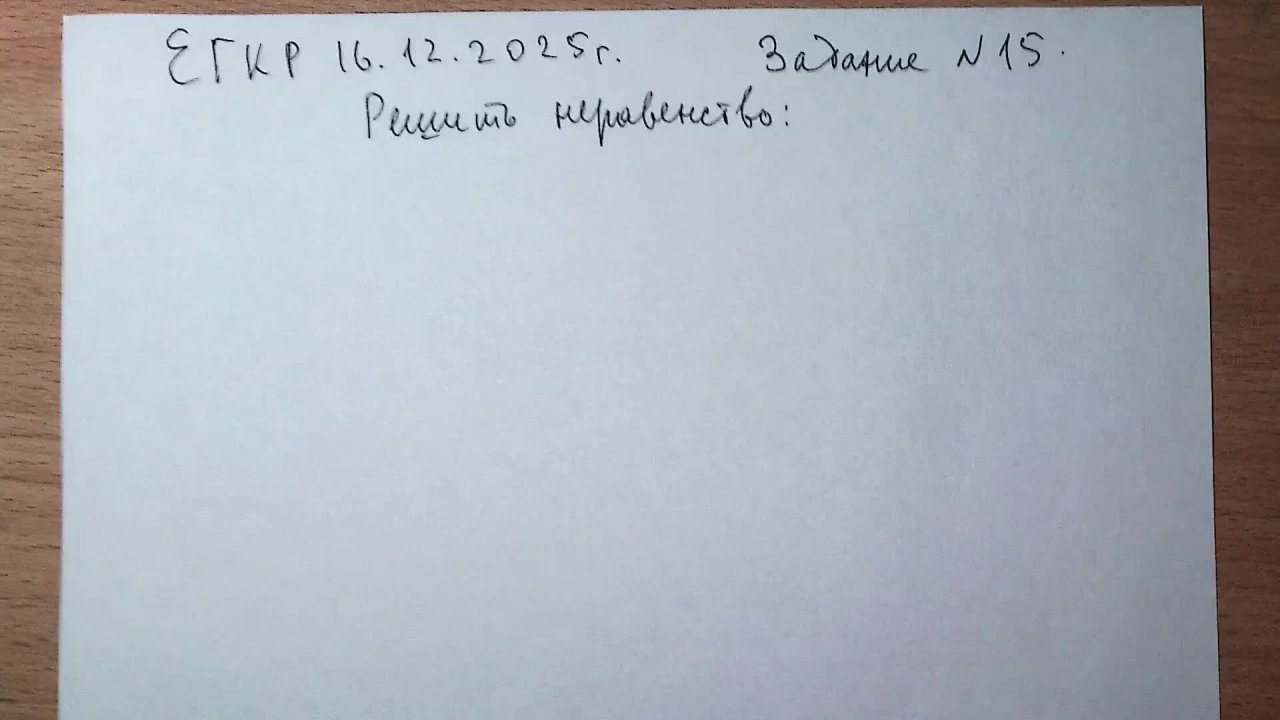 ЕГКР 16.12.2025г. Задание N15.
Решить неравенство: